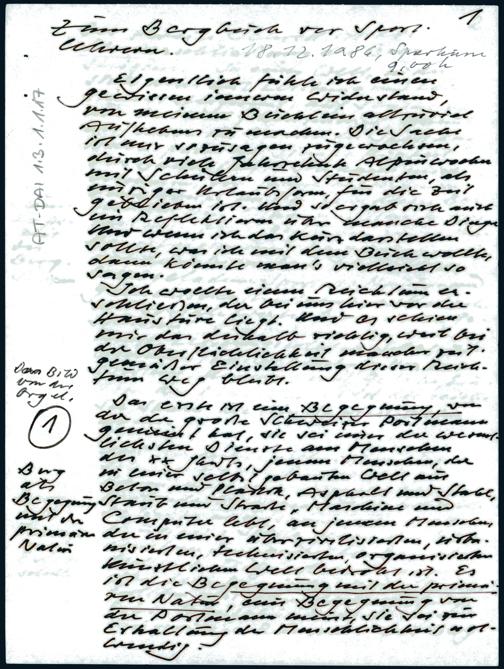 1
Zum Bergbuch vor Sport-
lehrern.
18.12.1986, Sparkasse
9,00 h
AT-DAI 1.3.1.1.17
Eigentlich fühle ich einen
gewissen inneren Widerstand,
von meinem Büchlein allzuviel
Aufhebens zu machen. Die Sache
ist mir sozusagen zugewachsen,
durch viele Jahrzehnte Alpinwochen
mit Schülern und Studenten, als
einziger Urlaubsform für die Zeit
geblieben ist. Und so ergab sich mir
ein Reflektieren über manche Dinge
Und wenn ich das kurz darstellen
sollte, was ich mit dem Buch wollte,
dann könnte man's vielleicht so
sagen.
Ich wollte einen Reichtum er-
schließen, der bei uns hier vor der
Haustüre liegt. Und es schien
mir das deshalb wichtig, weil bei
der Oberflächlichkeit mancher zeit-
genössischer Einstellung dieser Reich-
tum weg bleibt.
Das Bild
von der
Orgel.
1
Berg
als
Begegnung
mit der
primären
Natur
Das erste ist eine Begegnung, von
der der große Schweizer Portmann
gemeint hat, sie sei einer der wesent-
lichsten Dienste am Menschen
des xx Jahrh, jenem Menschen, der
in einer selbst gebauten Welt aus
Beton und Plastik, Asphalt und Stahl,
Staub und Straße, Maschine und
Computer lebt, an jenem Menschen,
der in einer überzivilisierten,
technischen, organisierten
künstlichen Welt bedroht ist. Es
ist die Begegnung mit der primä-
ren Natur, eine Begegnung von
der Portmann meint, sie sei zur
Erhaltung der Menschlichkeit not-
wendig.